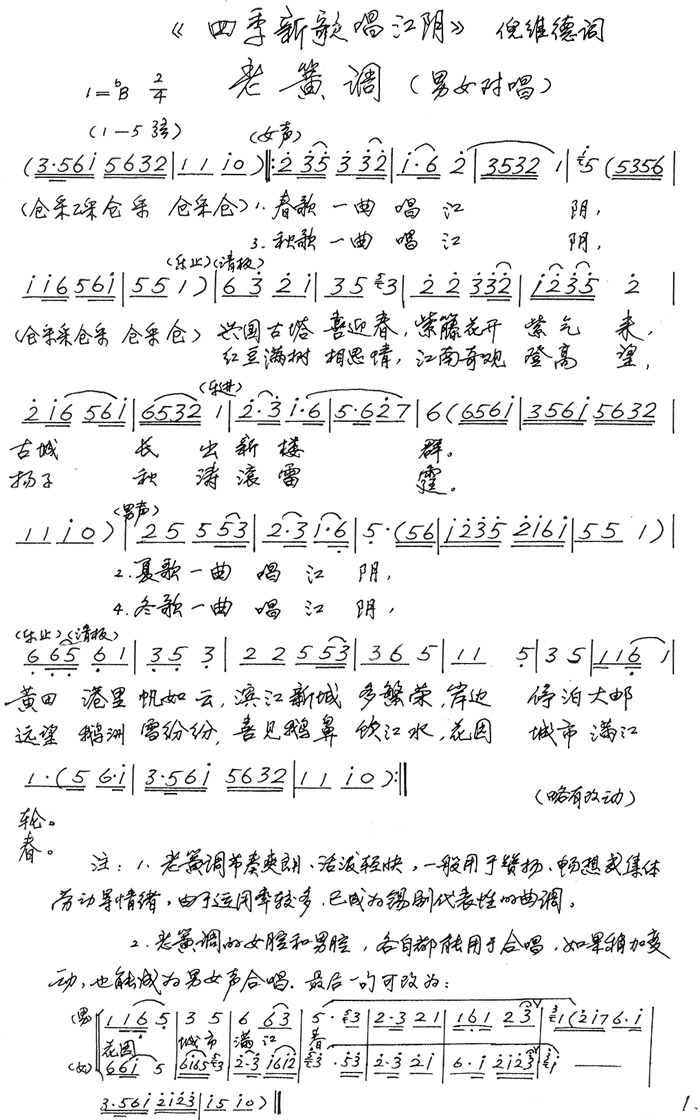 《四季新歌唱江阴》 倪维德词
1=♭B 2/4 老簧调（男女对唱）
(1—5弦) (女声)
(3·56i 5632|11 i0)‖:2 35 3 32|i·6 2|3532 1|5 (5356|
(仓采采仓采 仓采仓) 1.春歌一曲唱江 阴，
3.秋歌一曲唱江 阴，
(乐止)(清板)
ii6 56i|55 1)|63 2i|35 3|2 2 332|i235 2|
(仓采采仓采 仓采仓) 兴国古塔 喜迎春，紫藤花开 紫气 来，
红豆满树 相思情，江南奇观 登高 望，
(乐进)
2i6 56i|6532 1|2·3 i·6|5·627|6(656i|356i 5632|
古城 长 出新楼 群。
扬子 秋 涛滚雷 霆。
(男声)
11 i0)|25 553|2·3 1·6|5·(56|i235 2i6i|55 1)|
2.夏歌一曲 唱江 阴，
4.冬歌一曲 唱江 阴，
(乐止)(清板)
665 61|35 3|22 553|36 5|11 5|35|116 1|
黄田 港里 帆如云，滨江新城 多繁荣，岸边 停泊大邮
远望 鹅洲 雪纷纷，喜见鹅鼻 饮江水，花园 城市 满江
1·(5 6·i|3·56i 5632|11 i0):‖
(略有改动)
轮。
春。
注：1.老簧调节奏爽朗、活泼轻快，一般用于赞扬、畅想或集体
劳动等情绪，由于运用率较多，已成为锡剧代表性的曲调。
2.老簧调的女腔和男腔，各自都能用于合唱，如果稍加变
动，也能成为男女声合唱。最后一句可改为：
(男) 116 5|35|6 63|5·3|2·3 21|161 23|1(2i76·i|
花园 城市 满江 春
(女) 66i 5|6i65 3|2·3 i6i2|3·53|2·3 2i|6·i 2i23|i —
3·56i 2i23|i5 i0)‖
1.